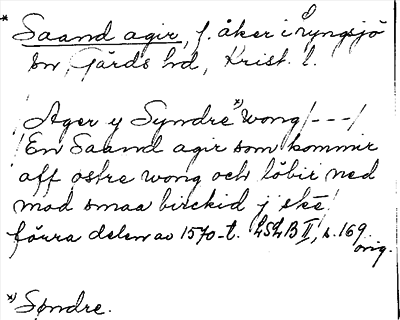 * Saand agir, f. åker i Lyngsjö
sn, Gärds hd, Krist. l.
Ager y Syndre *) wong /---/
En Saand agir som kommir
aff ostre wong och löbir ned
mod smaa birckid j ske /
förra delen av 1570-t. LSLB II, s. 169
orig.
*) Søndre.